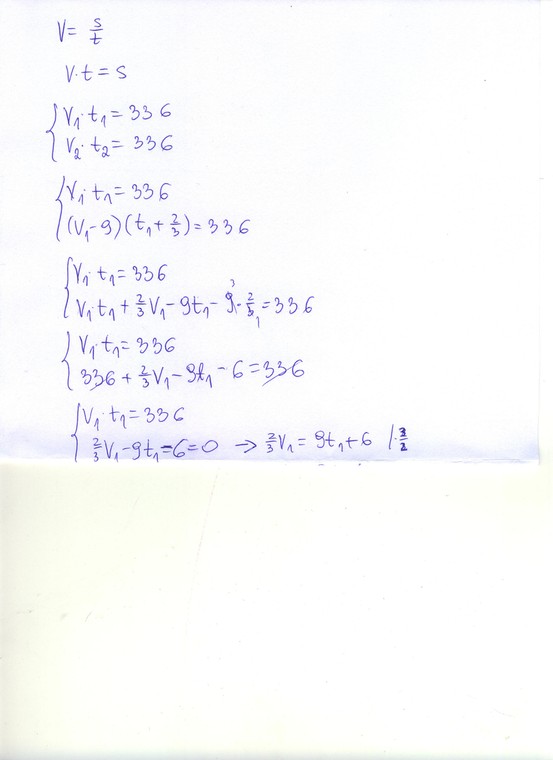 V = s/t
V·t = s
{ V₁·t₁ = 336
V₂·t₂ = 336
{ V₁·t₁ = 336
(V₁-9)(t₁+2/3) = 336
{ V₁·t₁ = 336
V₁t₁ + 2/3V₁ - 9t₁ - 9̸³·2/3̸₁ = 336
{ V₁·t₁ = 336
336 + 2/3V₁ - 9t₁ - 6 = 336
{ V₁·t₁ = 336
2/3V₁ - 9t₁ - 6 = 0 → 2/3V₁ = 9t₁ + 6 /·3/2